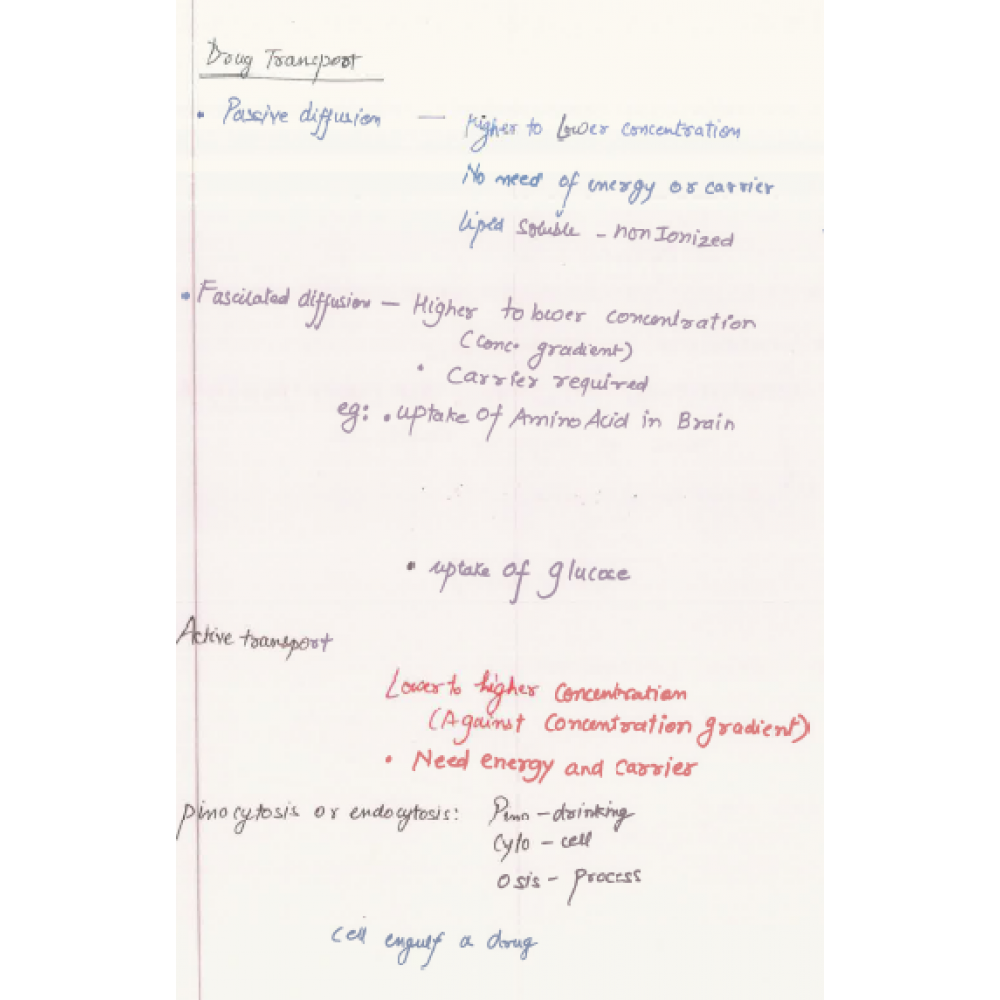 Drug Transport
• Passive diffusion — Higher to Lower concentration
No need of energy or carrier
liped soluble - non Ionized
• Fascilated diffusion — Higher to lower concentration
(conc. gradient)
• Carrier required
eg: • uptake of Amino Acid in Brain
• uptake of glucose
Active transport
Lower to higher concentration
(Against concentration gradient)
• Need energy and carrier
pinocytosis or endocytosis: Pino - drinking
Cyto - cell
Osis - process
Cell engulf a drug